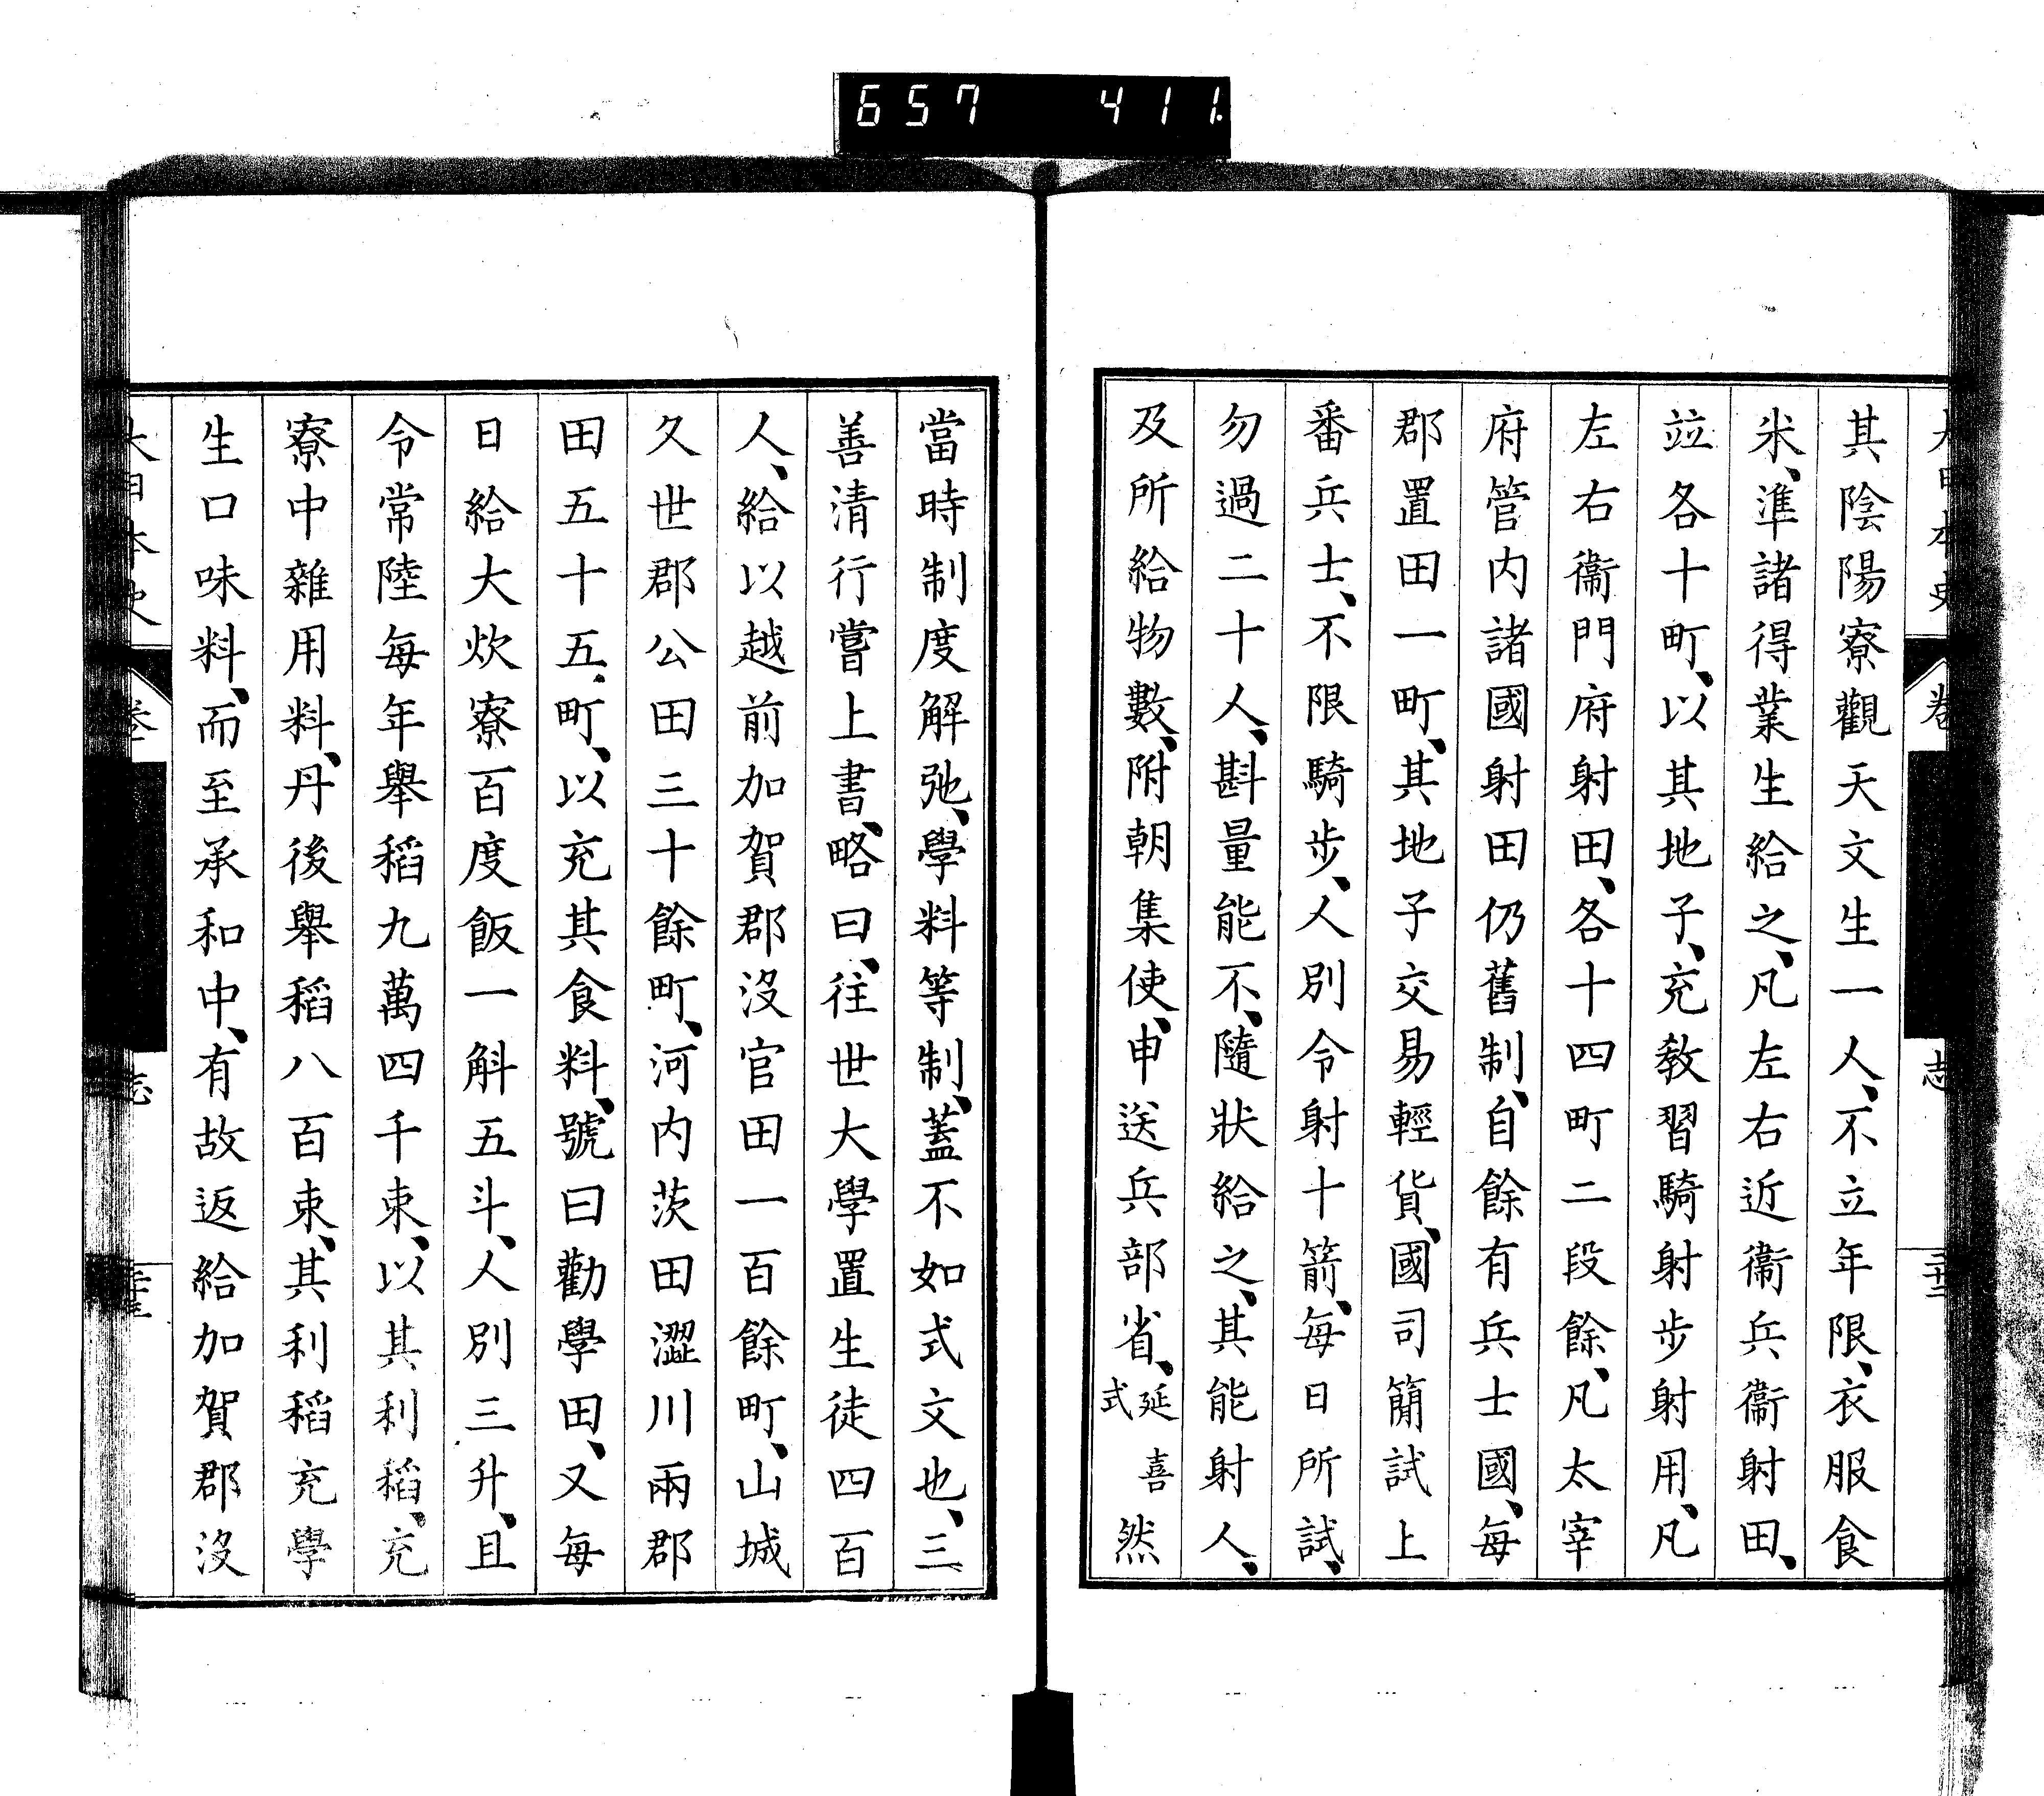 657 411.
其陰陽寮觀天文生一人、不立年限、衣服食
米、準諸得業生給之、凡左右近衞兵衞射田、
竝各十町、以其地子、充教習騎射步射用、凡
左右衞門府射田、各十四町二段餘、凡太宰
府管内諸國射田仍舊制、自餘有兵士國、每
郡置田一町、其地子交易輕貨、國司簡試上
番兵士、不限騎步、人別令射十箭、每日所試、
勿過二十人、斟量能不、隨狀給之、其能射人、
及所給物數、附朝集使、申送兵部省、延喜式然
當時制度解弛、學料等制、蓋不如式文也、三
善清行嘗上書、略曰、往世大學置生徒四百
人、給以越前加賀郡沒官田一百餘町、山城
久世郡公田三十餘町、河内茨田澀川兩郡
田五十五町、以充其食料、號曰勸學田、又每
日給大炊寮百度飯一斛五斗、人別三升、且
令常陸每年舉稻九萬四千束、以其利稻、充
寮中雜用料、丹後舉稻八百束、其利稻充學
生口味料、而至承和中、有故返給加賀郡沒